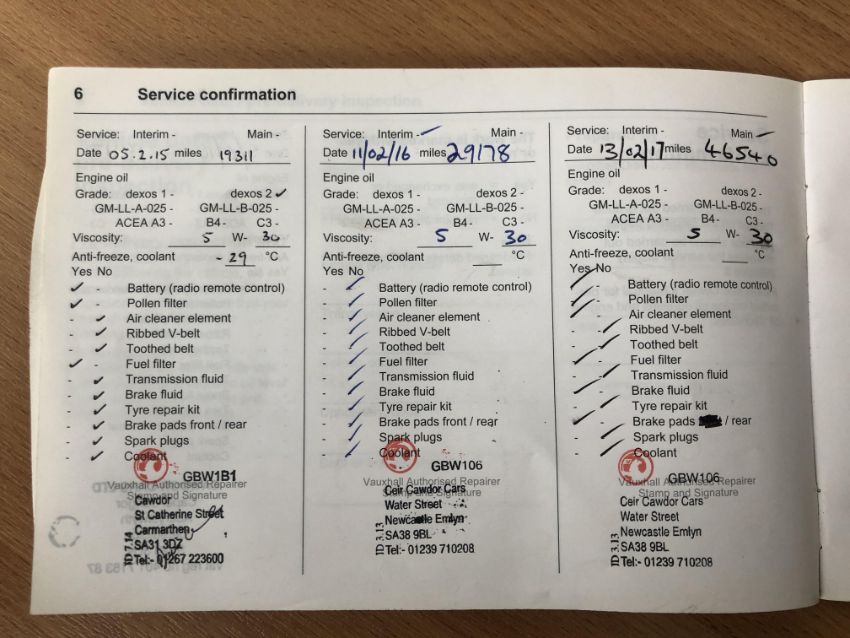 6 Service confirmation
Service: Interim - Main -
Date 05.2.15 miles 19311
Engine oil
Grade: dexos 1 - dexos 2 ✓
GM-LL-A-025 - GM-LL-B-025 -
ACEA A3 - B4 - C3 -
Viscosity: 5 W- 30
Anti-freeze, coolant - 29 °C
Yes No
✓ - Battery (radio remote control)
✓ - Pollen filter
- ✓ Air cleaner element
- ✓ Ribbed V-belt
- ✓ Toothed belt
✓ - Fuel filter
- ✓ Transmission fluid
- ✓ Brake fluid
- ✓ Tyre repair kit
- ✓ Brake pads front / rear
- ✓ Spark plugs
- ✓ Coolant
GBW1B1
Vauxhall Authorised Repairer
Stamp and Signature
Cawdor
St Catherine Street
Carmarthen
SA31 3DZ
Tel:- 01267 223600
ID 7.14
Service: Interim - ✓ Main -
Date 11/02/16 miles 29178
Engine oil
Grade: dexos 1 - dexos 2 -
GM-LL-A-025 - GM-LL-B-025 -
ACEA A3 - B4 - C3 -
Viscosity: 5 W- 30
Anti-freeze, coolant °C
Yes No
- ✓ Battery (radio remote control)
- ✓ Pollen filter
- ✓ Air cleaner element
- ✓ Ribbed V-belt
- ✓ Toothed belt
- ✓ Fuel filter
- ✓ Transmission fluid
- ✓ Brake fluid
- ✓ Tyre repair kit
- ✓ Brake pads front / rear
- ✓ Spark plugs
- ✓ Coolant
GBW106
Vauxhall Authorised Repairer
Stamp and Signature
Ceir Cawdor Cars
Water Street
Newcastle Emlyn
SA38 9BL
Tel:- 01239 710208
ID 3.13
Service: Interim - Main ✓
Date 13/02/17 miles 46540
Engine oil
Grade: dexos 1 - dexos 2 -
GM-LL-A-025 - GM-LL-B-025 -
ACEA A3 - B4 - C3 -
Viscosity: 5 W- 30
Anti-freeze, coolant °C
Yes No
✓ Battery (radio remote control)
✓ Pollen filter
✓ Air cleaner element
- ✓ Ribbed V-belt
- ✓ Toothed belt
✓ Fuel filter
- ✓ Transmission fluid
✓ Brake fluid
- ✓ Tyre repair kit
✓ Brake pads / rear
- ✓ Spark plugs
- ✓ Coolant
GBW106
Vauxhall Authorised Repairer
Stamp and Signature
Ceir Cawdor Cars
Water Street
Newcastle Emlyn
SA38 9BL
Tel:- 01239 710208
ID 3.13